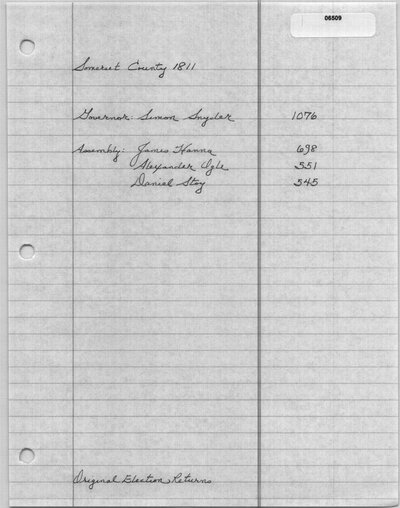 06509
Somerset County 1811
Governor: Simon Snyder 1076
Assembly: James Hanna 698
Alexander Ogle 551
Daniel Stoy 545
Original Election Returns